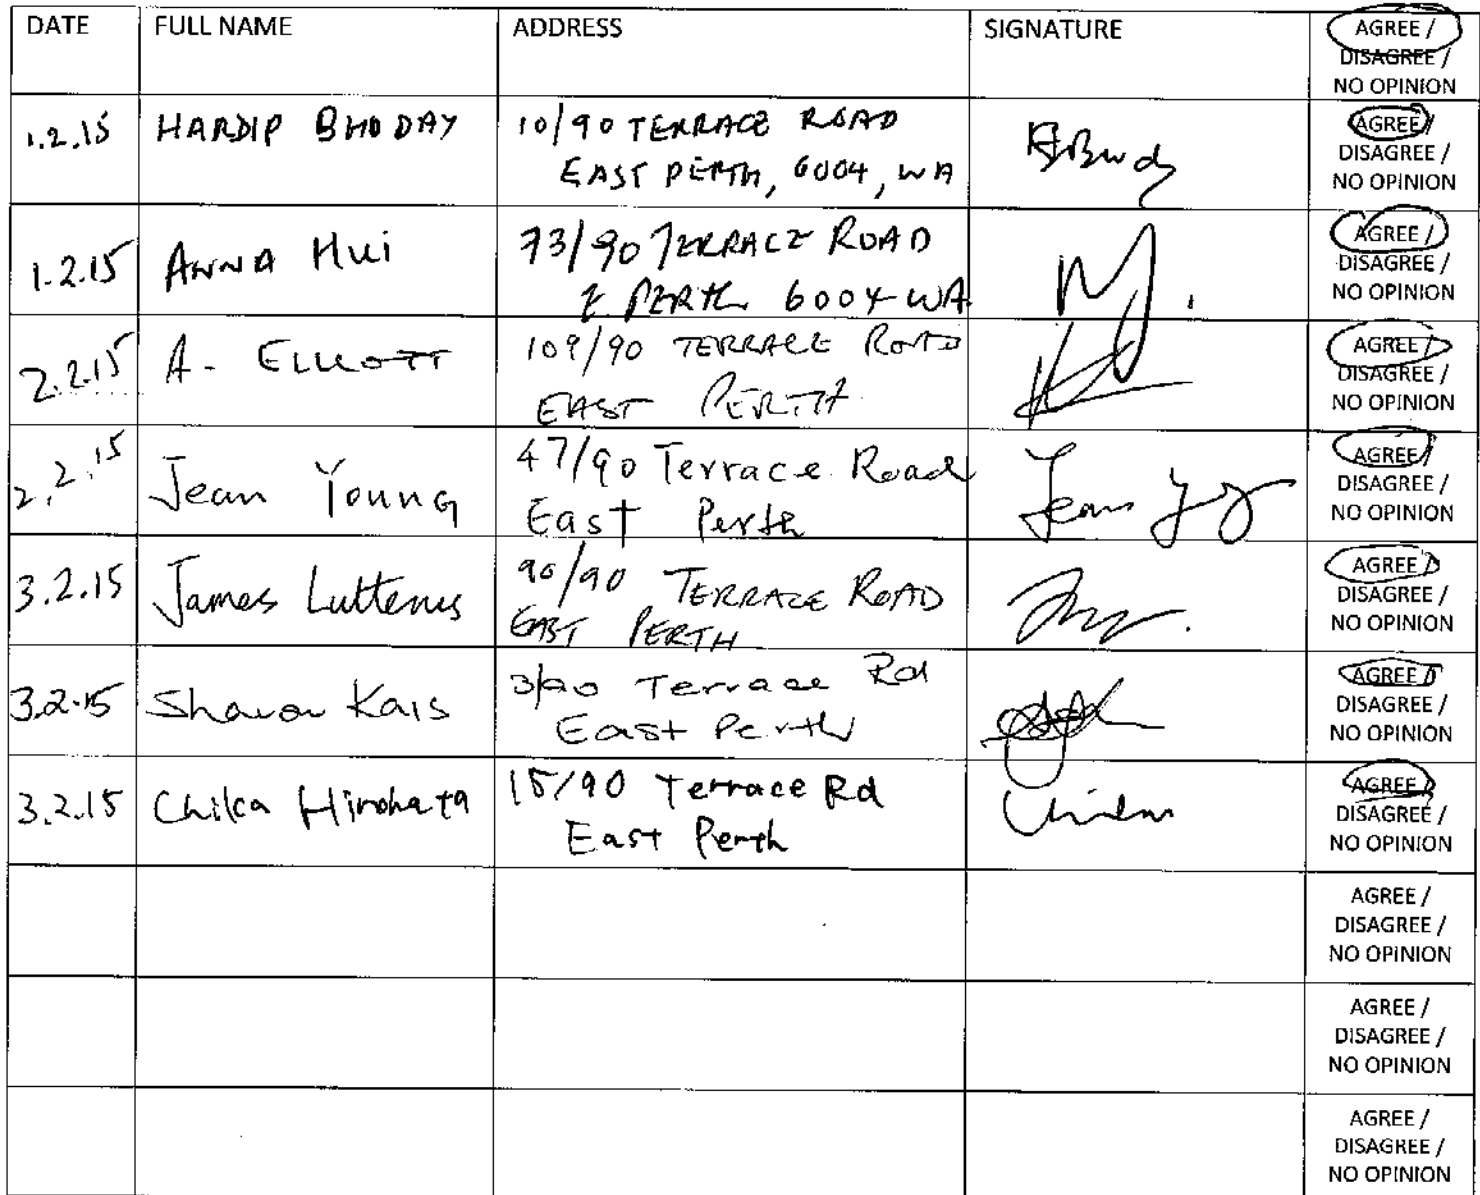 DATE FULL NAME ADDRESS SIGNATURE AGREE /
DISAGREE /
NO OPINION
1.2.15 HARDIP BHODAY 10/90 TERRACE ROAD
EAST PERTH, 6004, WA
AGREE /
DISAGREE /
NO OPINION
1.2.15 ANNA Hui 73/90 TERRACE ROAD
E. PERTH 6004 WA.
AGREE /
DISAGREE /
NO OPINION
2.2.15 A. ELLIOTT 109/90 TERRACE ROAD
EAST PERTH
AGREE /
DISAGREE /
NO OPINION
2.2.15 Jean Young 47/90 Terrace Road
East Perth
Jean
AGREE /
DISAGREE /
NO OPINION
3.2.15 James 90/90 TERRACE ROAD
EAST PERTH
AGREE /
DISAGREE /
NO OPINION
3.2.15 Sharon Kais 3/90 Terrace Rd
East Perth
AGREE /
DISAGREE /
NO OPINION
3.2.15 Chika Hirohata 15/90 Terrace Rd
East Perth
AGREE /
DISAGREE /
NO OPINION
AGREE /
DISAGREE /
NO OPINION
AGREE /
DISAGREE /
NO OPINION
AGREE /
DISAGREE /
NO OPINION